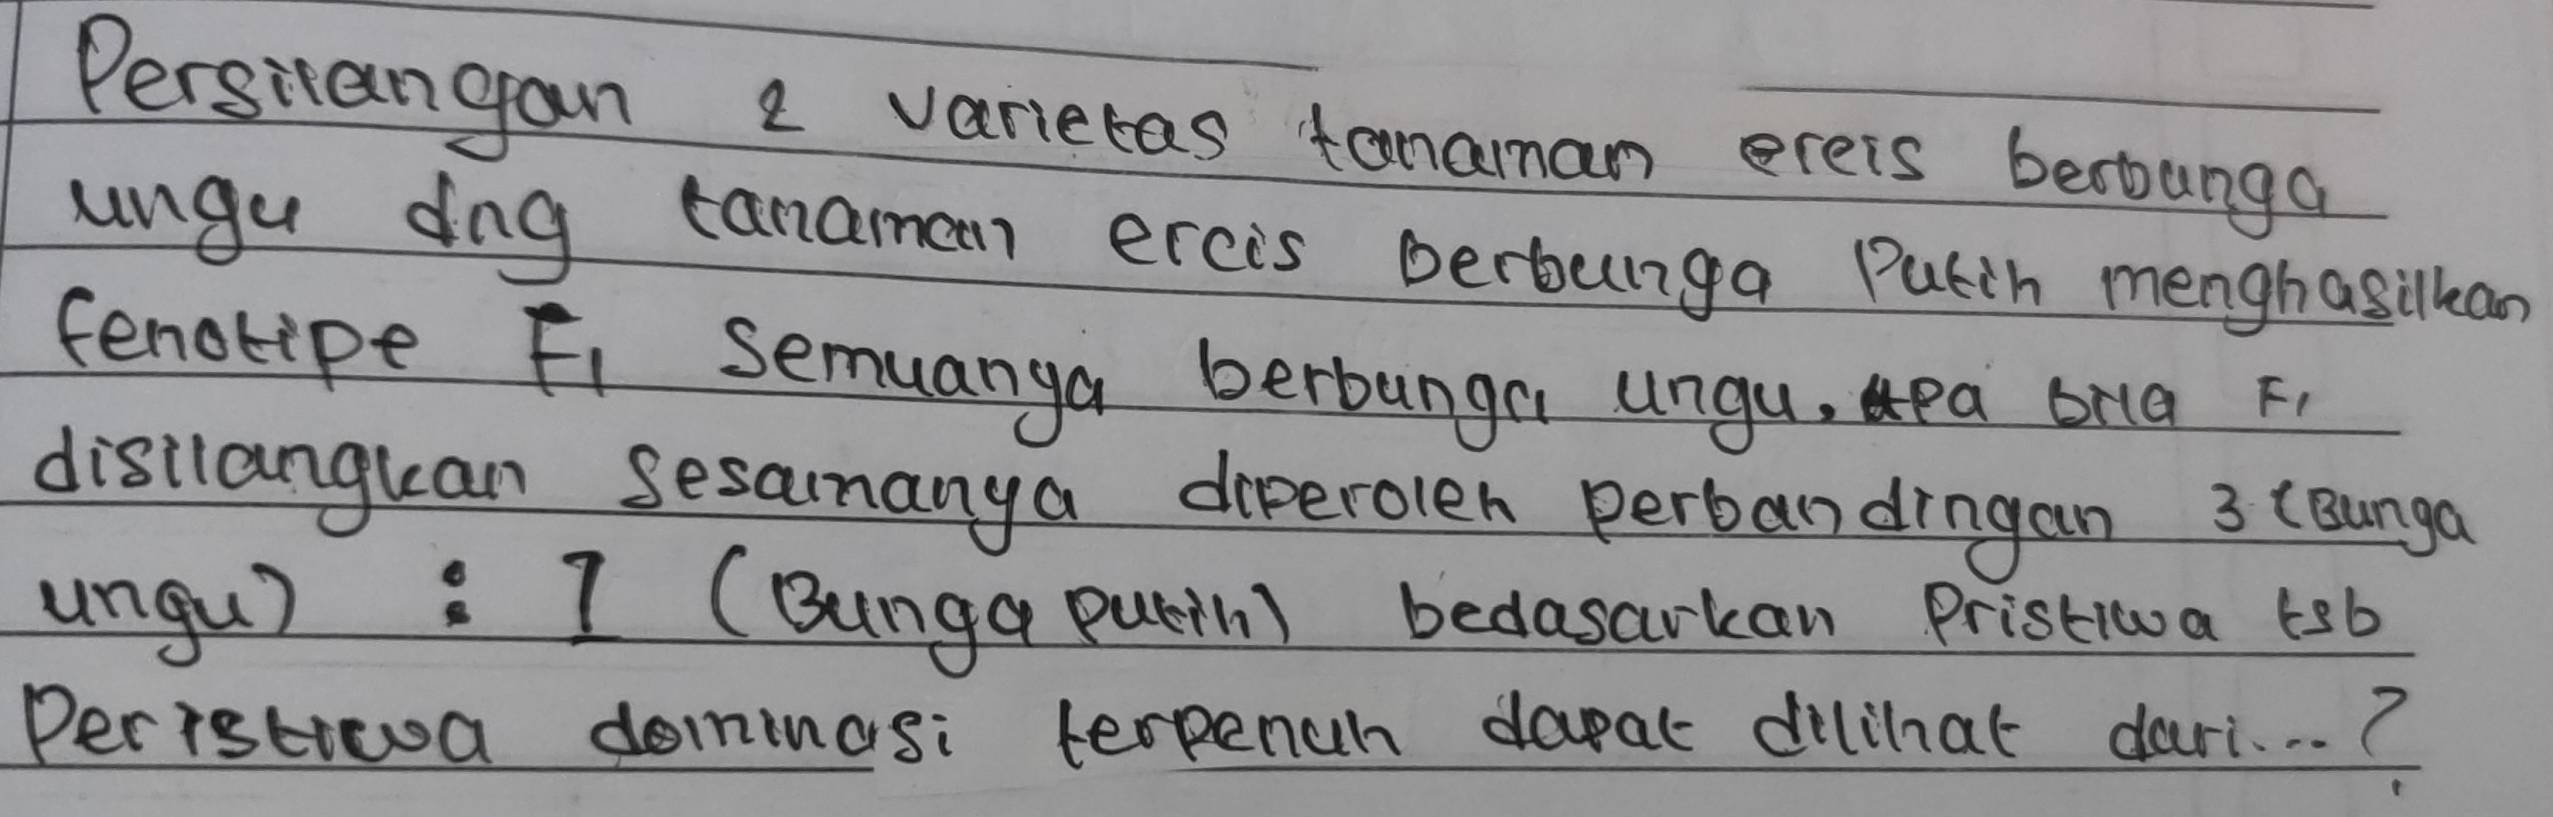 Persilangan 2 varietas tanaman ercis berbunga
ungu dng tanaman ercis berbunga Putih menghasilkan
fenotipe F1 semuanya berbunga ungu. apa bila F1
disilangkan sesamanya diperoleh perbandingan 3 (Bunga
ungu) : 1 (Bunga putih) bedasarkan Pristiwa tsb
Peristiwa dominasi terpenuh dapat dilihat dari....?